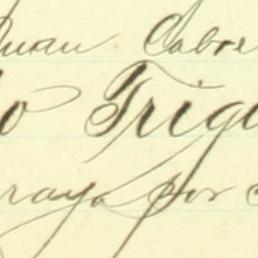 Juan Cabre
o Trigu
raya por